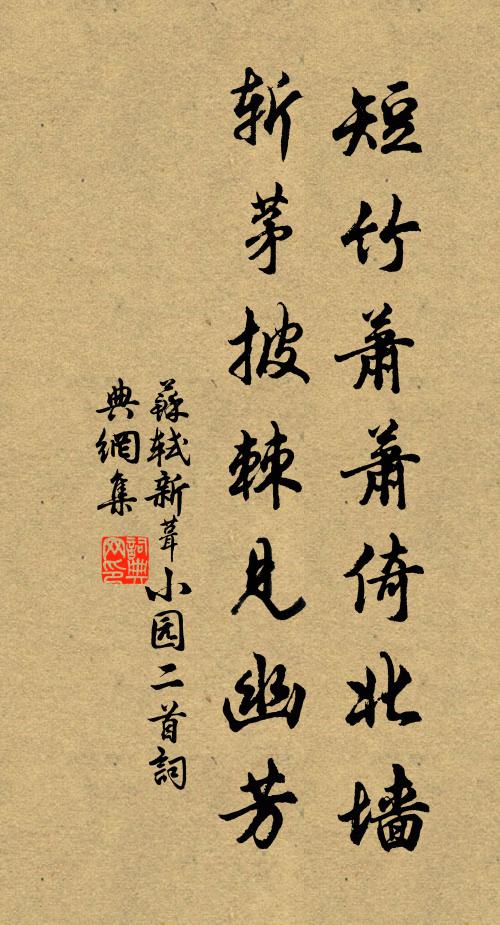 短竹萧萧倚北墙
斩茅披棘见幽芳
蘇轼新葺小园二首詞
典網集
詞典
网印